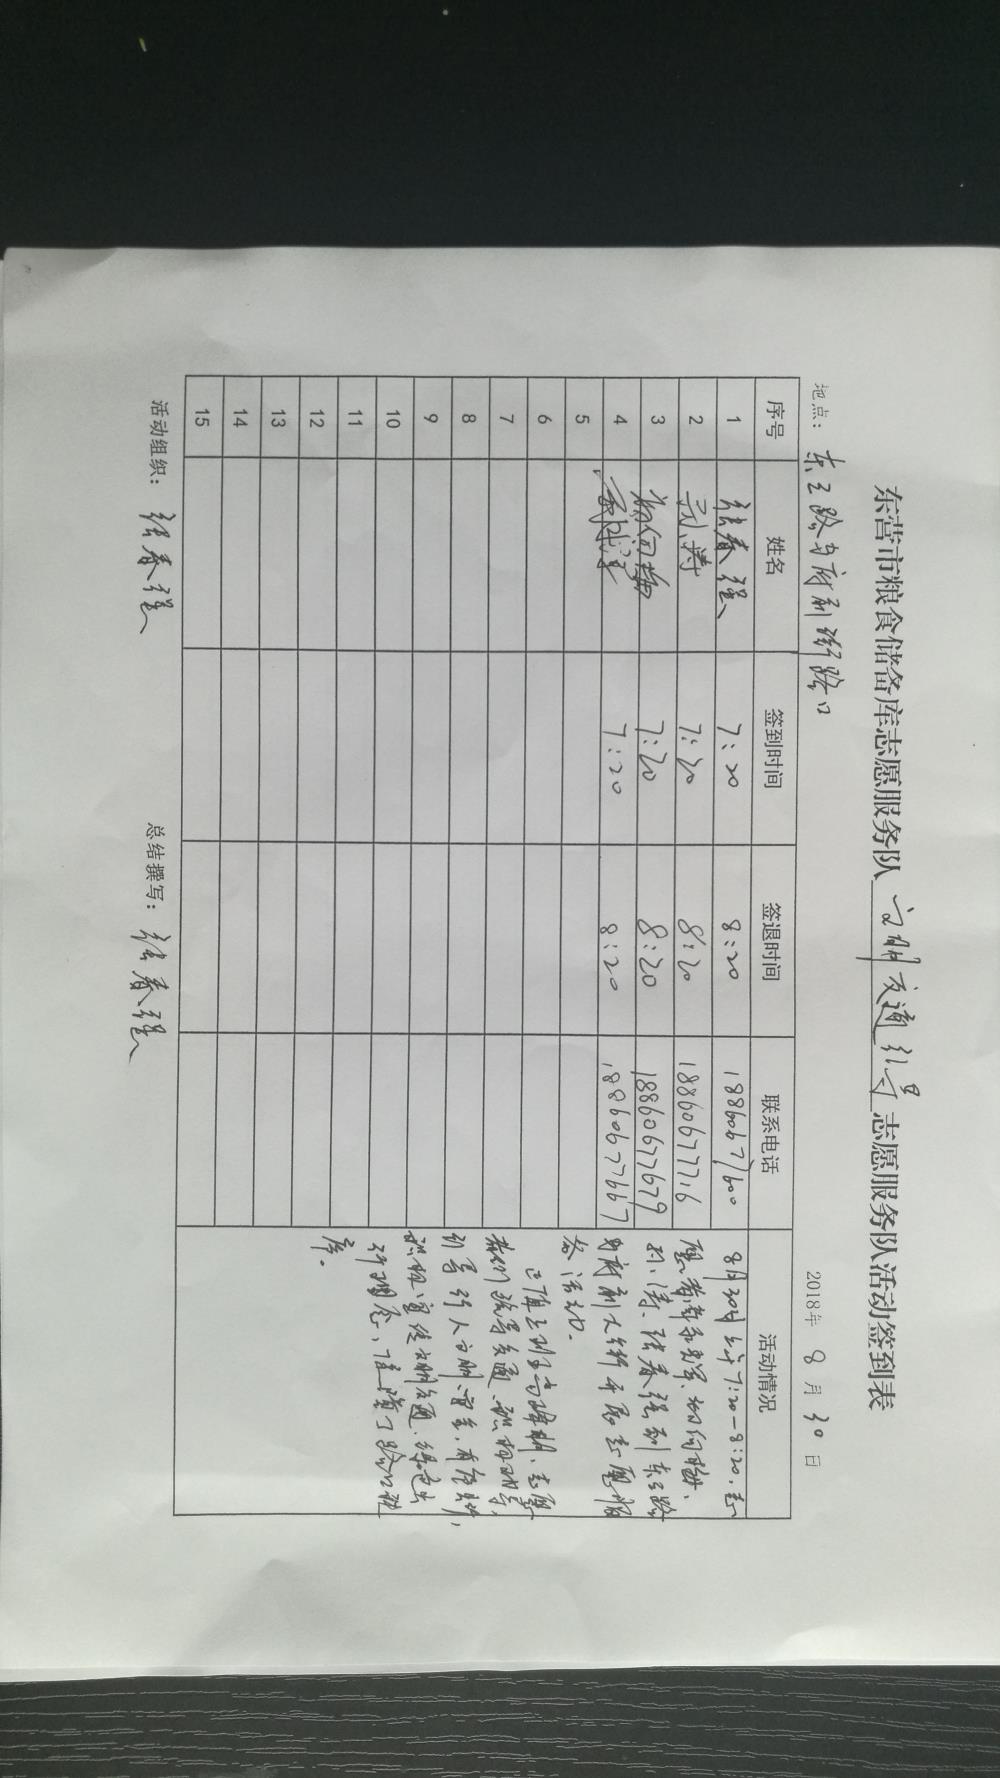 东营市粮食储备库志愿服务队 文明交通引导 志愿服务队活动签到表
地点： 东三路与府前街路口 2018年 8月 30日
序号 姓名 签到时间 签退时间 联系电话 活动情况
1 张春强 7:20 8:20 18860677600
2 孙涛 7:20 8:20 18860677716
3 7:20 8:20 18860677679
4 7:20 8:20 18860677667
5
6
7
8
9
10
11
12
13
14
15
8月30日上午7:20—8:20，志
愿者
孙涛、张春强到东三路
与府前大街开展志愿服
务活动。
正值上班高峰期，志愿
者们疏导交通、积极引导，
引导行人文明
积极宣传文明交通、绿色出
行理念，保障了路口秩
序。
活动组织： 张春强 总结撰写： 张春强